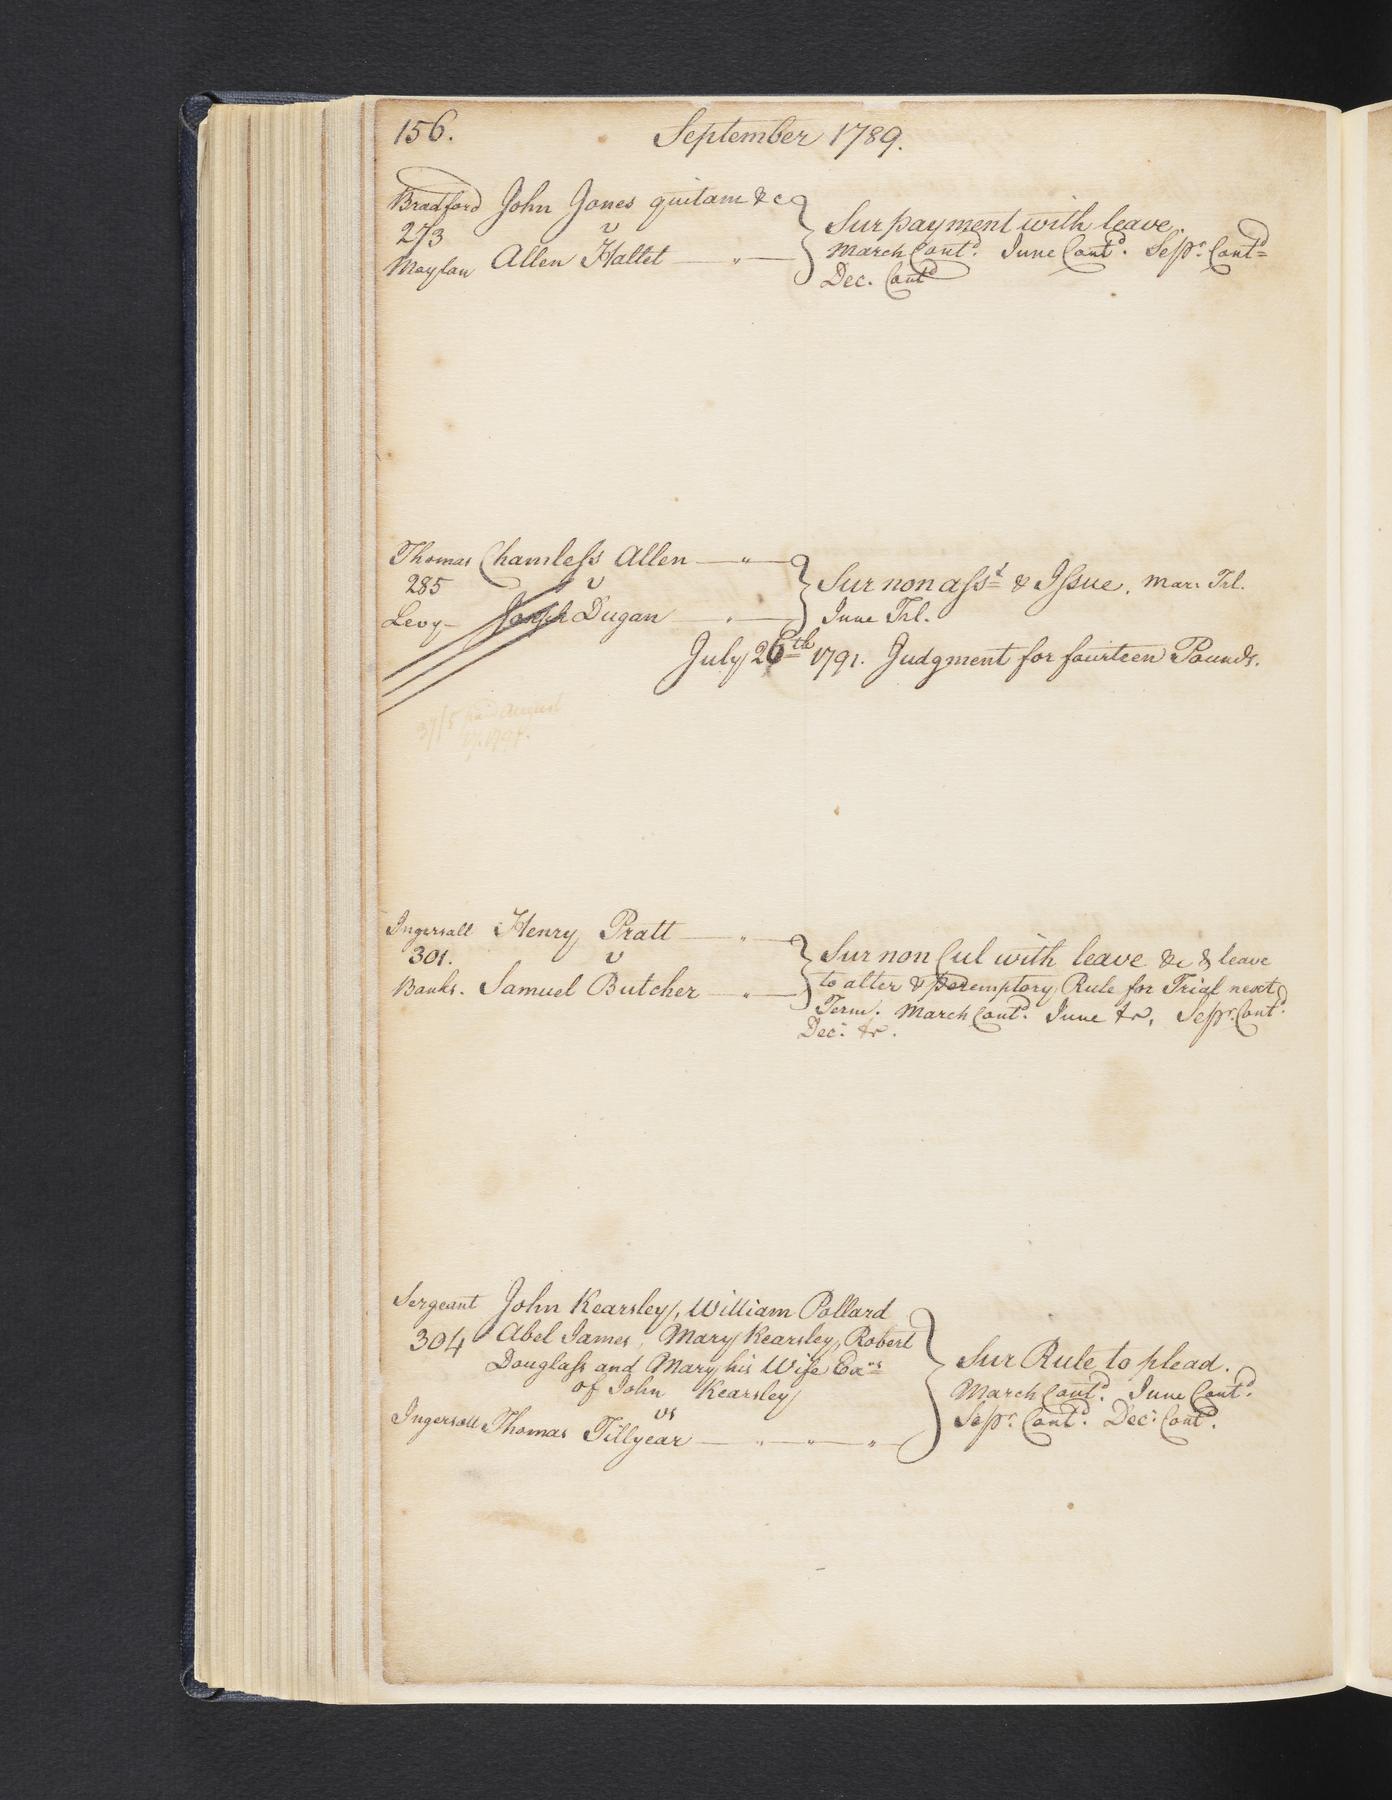 156. September 1789.
Bradford John Jones quitam &c
273 v
Moylan Allen Hallet
Sur payment with leave.
March Contd. June Contd. Sepr. Contd
Dec. Contd
Thomas Chamless Allen
285 v
Levy Joseph Dugan
Sur non asst & Issue. Mar. Trl.
June Trl.
July 26th 1791. Judgment for fourteen Pounds.
37/5 paid August
Ingersoll Henry Pratt
301. v
Banks. Samuel Butcher
Sur non Cul with leave &c & leave
to alter & peremptory Rule for Trial next
Term. March Contd. June tr, Sepr. Contd.
Dec: tr.
Sergeant John Kearsley, William Pollard
304 Abel James, Mary Kearsley, Robert
Douglass and Mary his Wife Exrs
of John Kearsley
vs
Ingersoll Thomas Tillyear
Sur Rule to plead.
March Contd. June Contd.
Sepr. Contd. Dec: Contd.